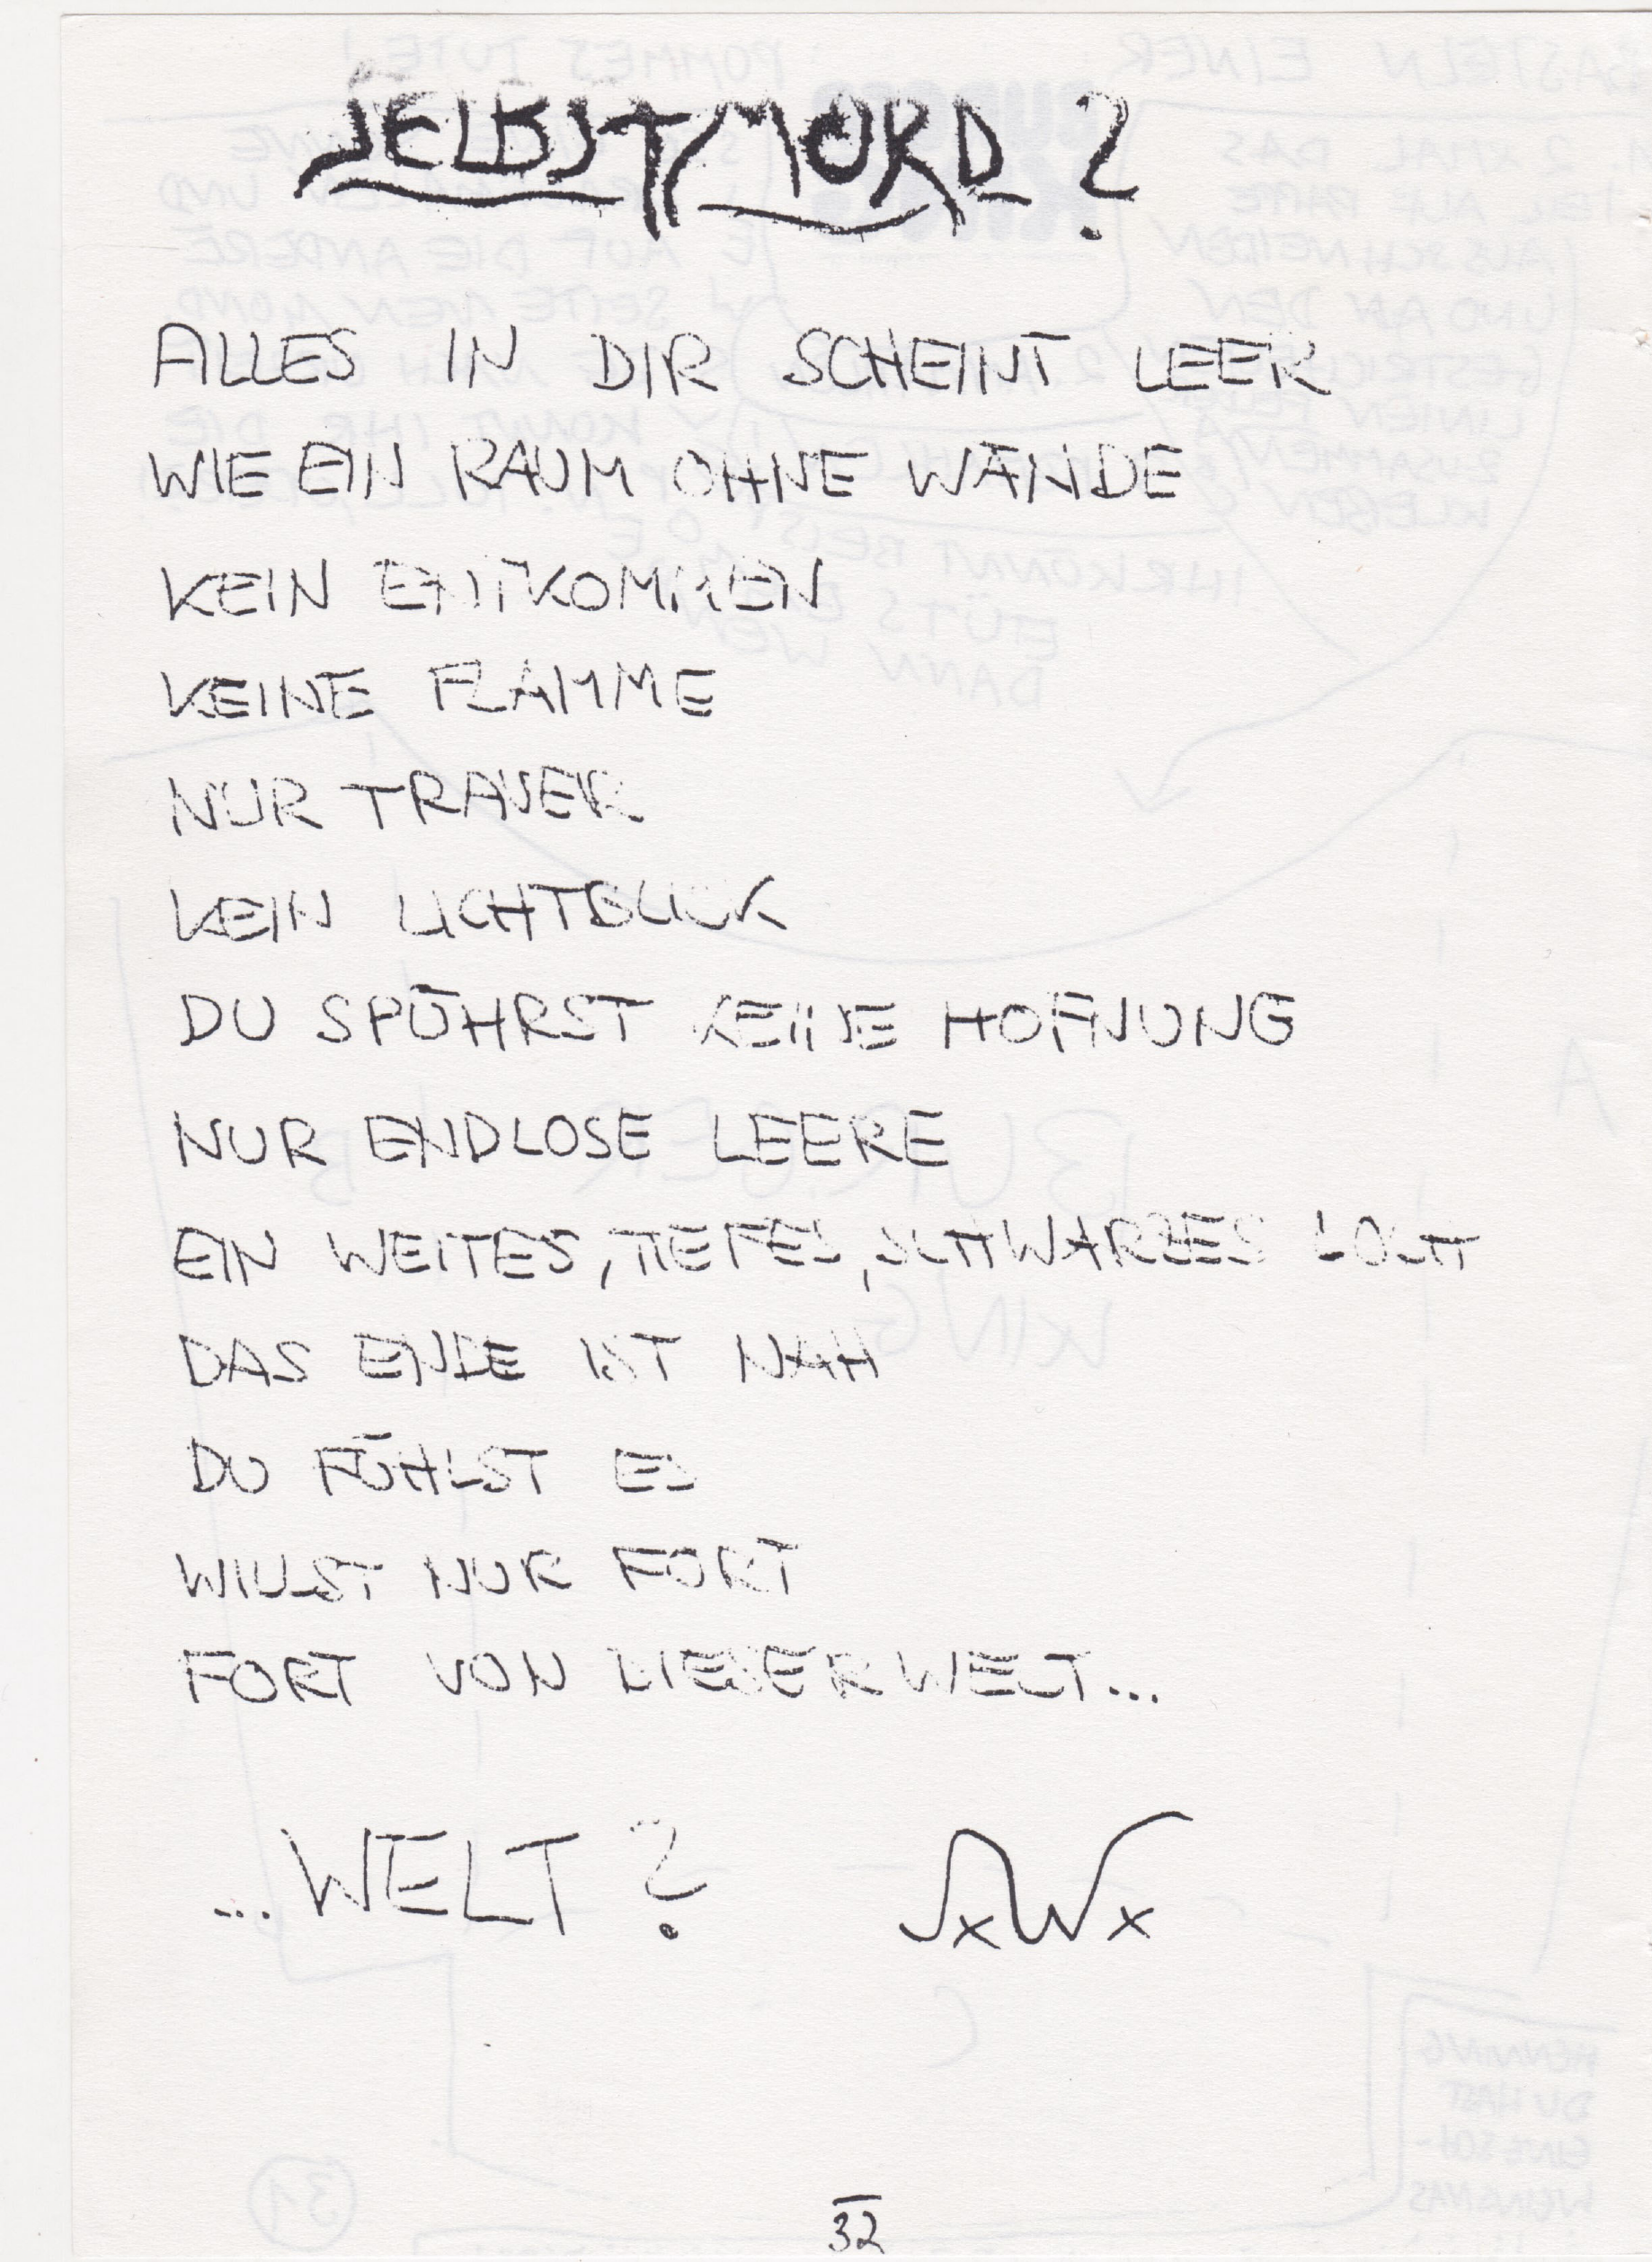 SELBSTMORD?
ALLES IN DIR SCHEINT LEER
WIE EIN RAUM OHNE WÄNDE
KEIN ENTKOMMEN
KEINE FLAMME
NUR TRAUER
KEIN LICHTBLICK
DU SPÜHRST KEINE HOFNUNG
NUR ENDLOSE LEERE
EIN WEITES, TIEFES, SCHWARZES LOCH
DAS ENDE IST NAH
DU FÜHLST ES
WILLST NUR FORT
FORT VON WELT...
...WELT?
32